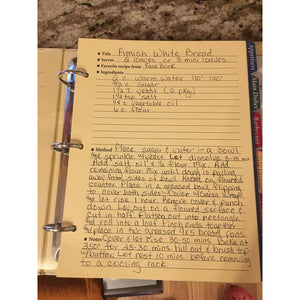 Title Amish White Bread
Serves 2 loaves or 3 mini loaves
Favorite recipe from FaceBook
Ingredients
2 c. warm water 110°-120°
2/3 c. sugar
1 1/2 T. yeast (2 pkg)
1 1/2 tsp salt
1/4 c vegetable oil
6 c. flour
Method Place sugar & water in a bowl
and sprinkle yeast. Let dissolve 5-15 min
Add salt oil & flour. Mix. Add
remaining flour. Mix until dough is pulling
away from sides of bowl. Knead on floured
counter. Place in a greased bowl flipping
to cover both sides. Cover
and let rise 1 hour. Remove cover & punch
down. Put on a floured surface &
cut in half. Flatten out into rectangle
and roll into a loaf. Pinch ends together
and place in two greased 9x5 bread pans.
Notes Cover & let rise 30-50 mins. Bake at
350° for 25-30 mins till done & brush top
w/butter. Let rest 10 mins before removing
to a cooling rack
Appetizers
Main Dishes